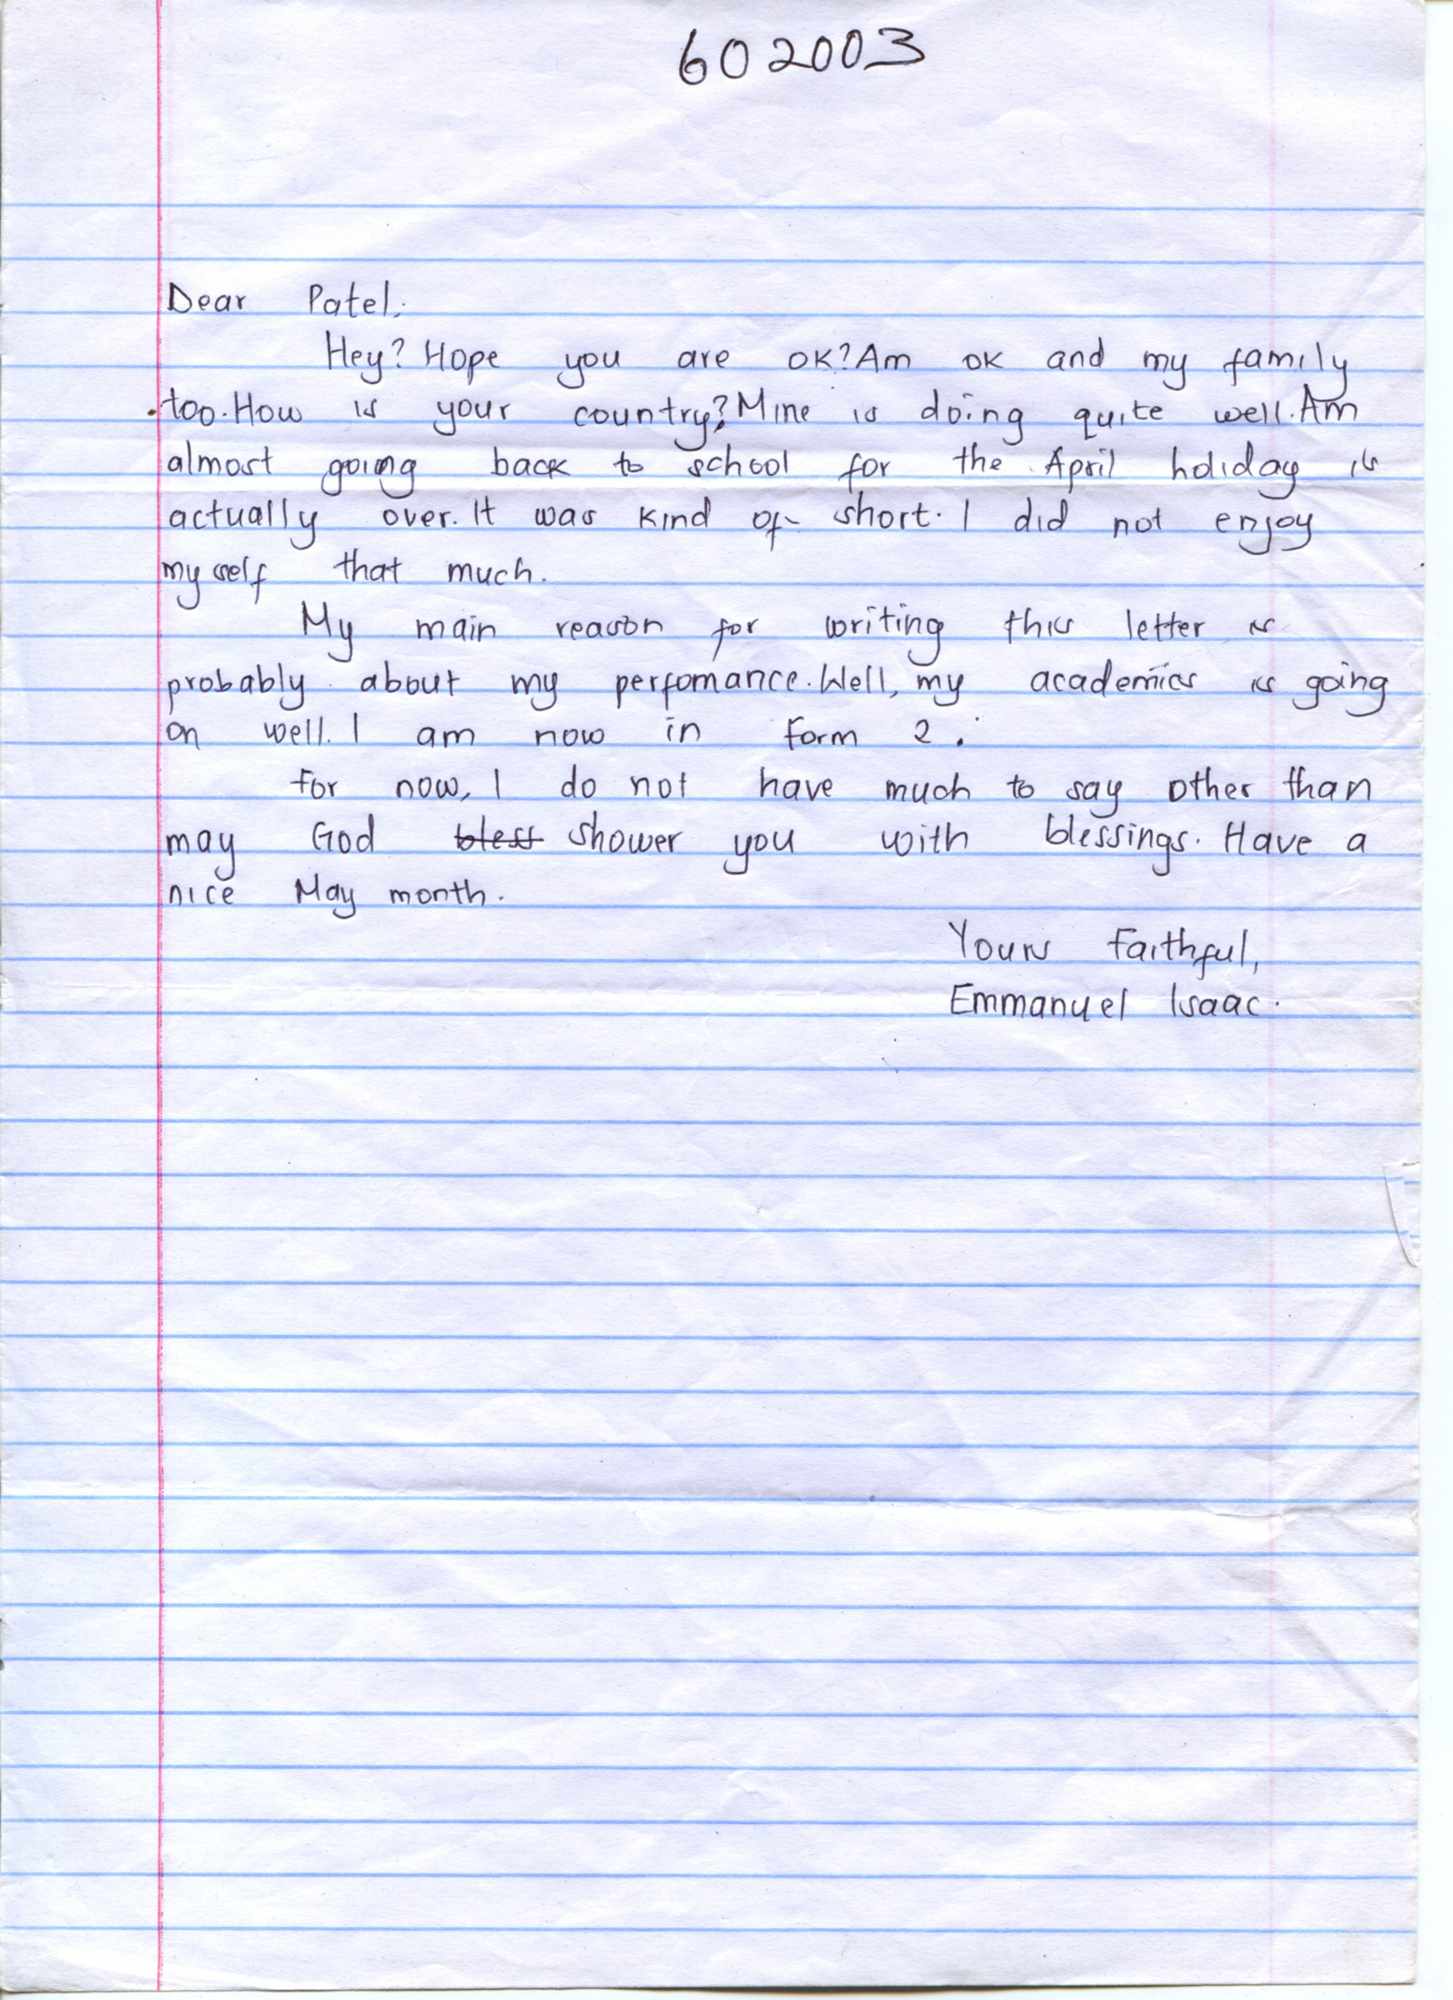 602003
Dear Patel,
Hey? Hope you are ok? Am ok and my family
too. How is your country? Mine is doing quite well. Am
almost going back to school for the April holiday is
actually over. It was kind of short. I did not enjoy
my self that much.
My main reason for writing this letter is
probably about my perfomance. Well, my academics is going
on well. I am now in form 2.
For now, I do not have much to say other than
may God bless shower you with blessings. Have a
nice May month.
Yours Faithful,
Emmanuel Isaac.